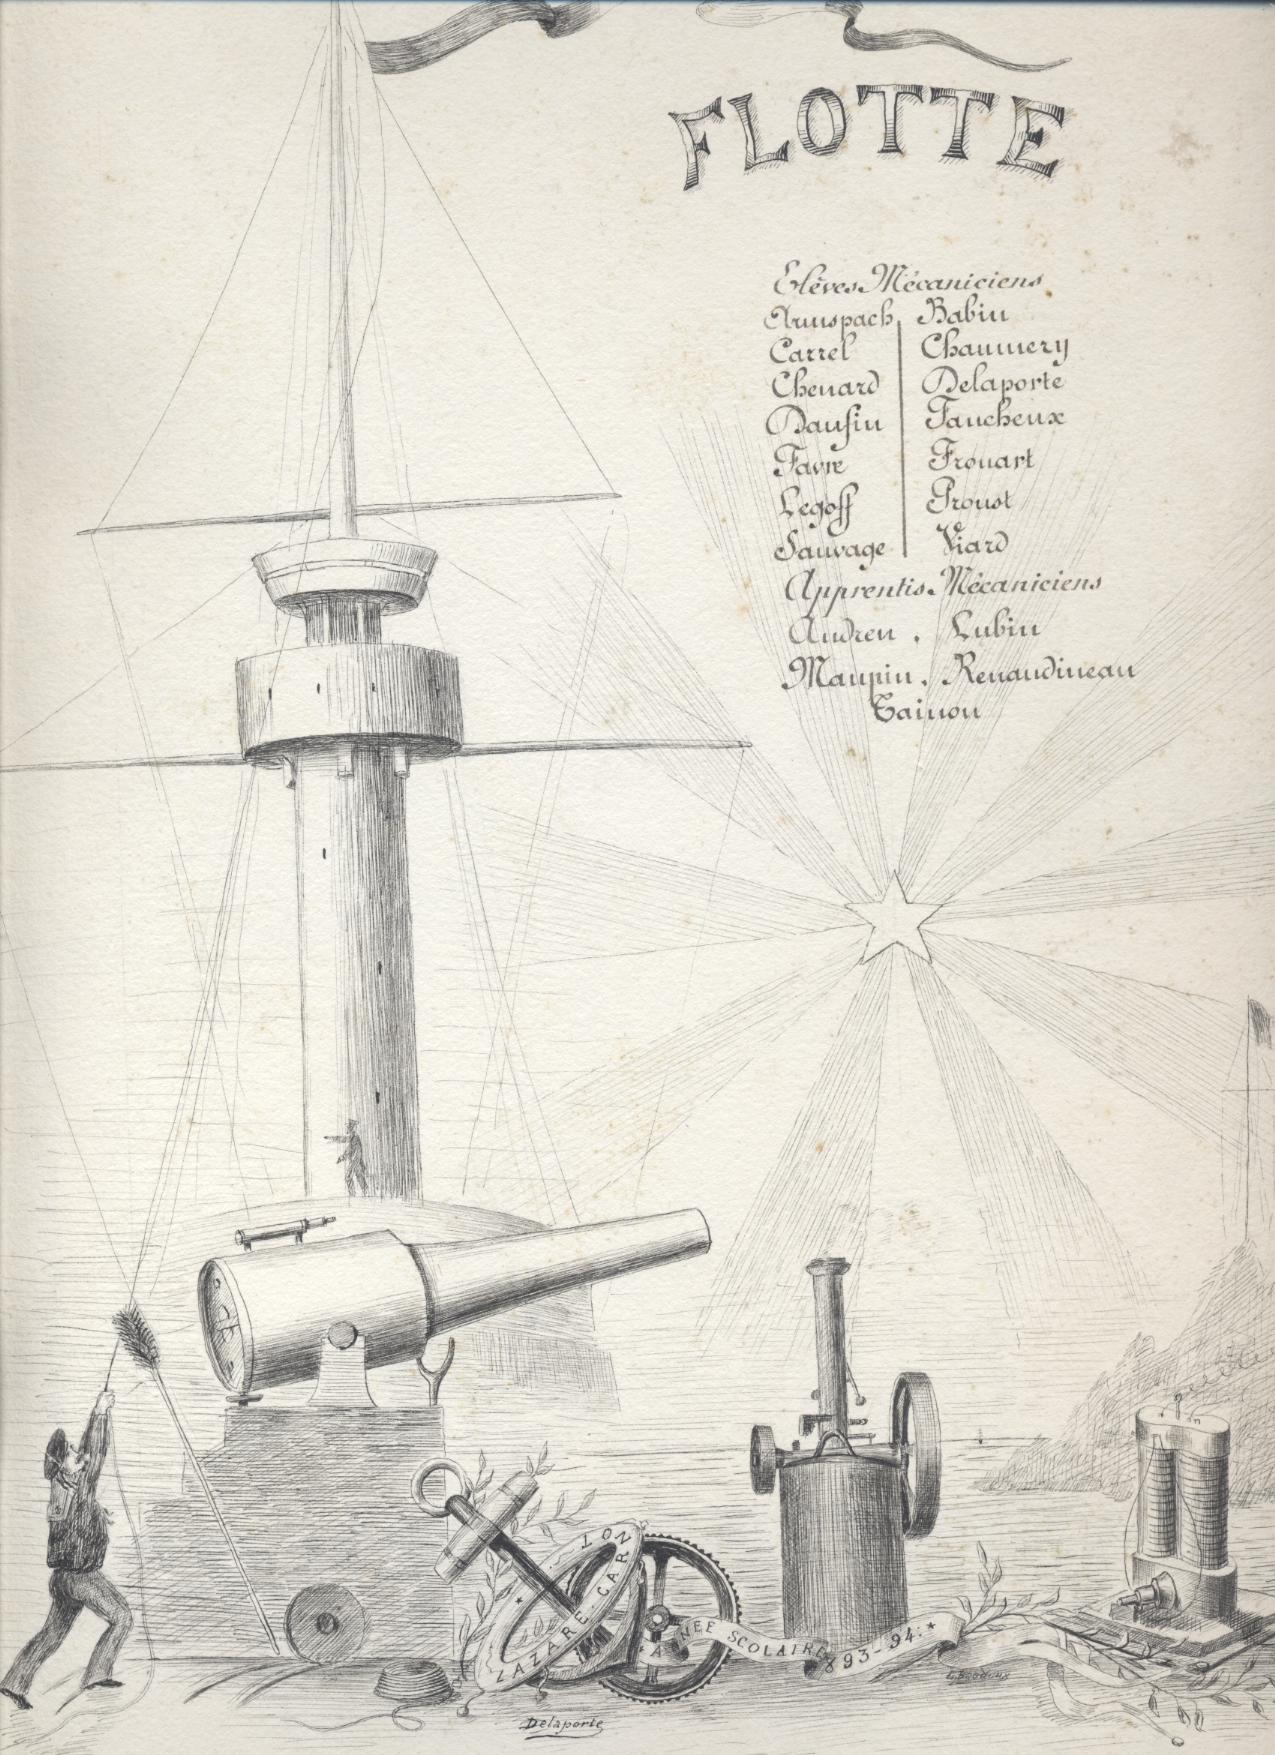 FLOTTE
Elèves Mécaniciens
Armspach Babin
Carrel Chaumery
Chenard Delaporte
Daufin Faucheux
Favre Frouart
Legoff Proust
Sauvage Viard
Apprentis Mécaniciens
Andren . Lubin
Maupin . Renaudineau
Tainon
LAZARE CARNOT
ANNÉE SCOLAIRE 1893-94.
Delaporte